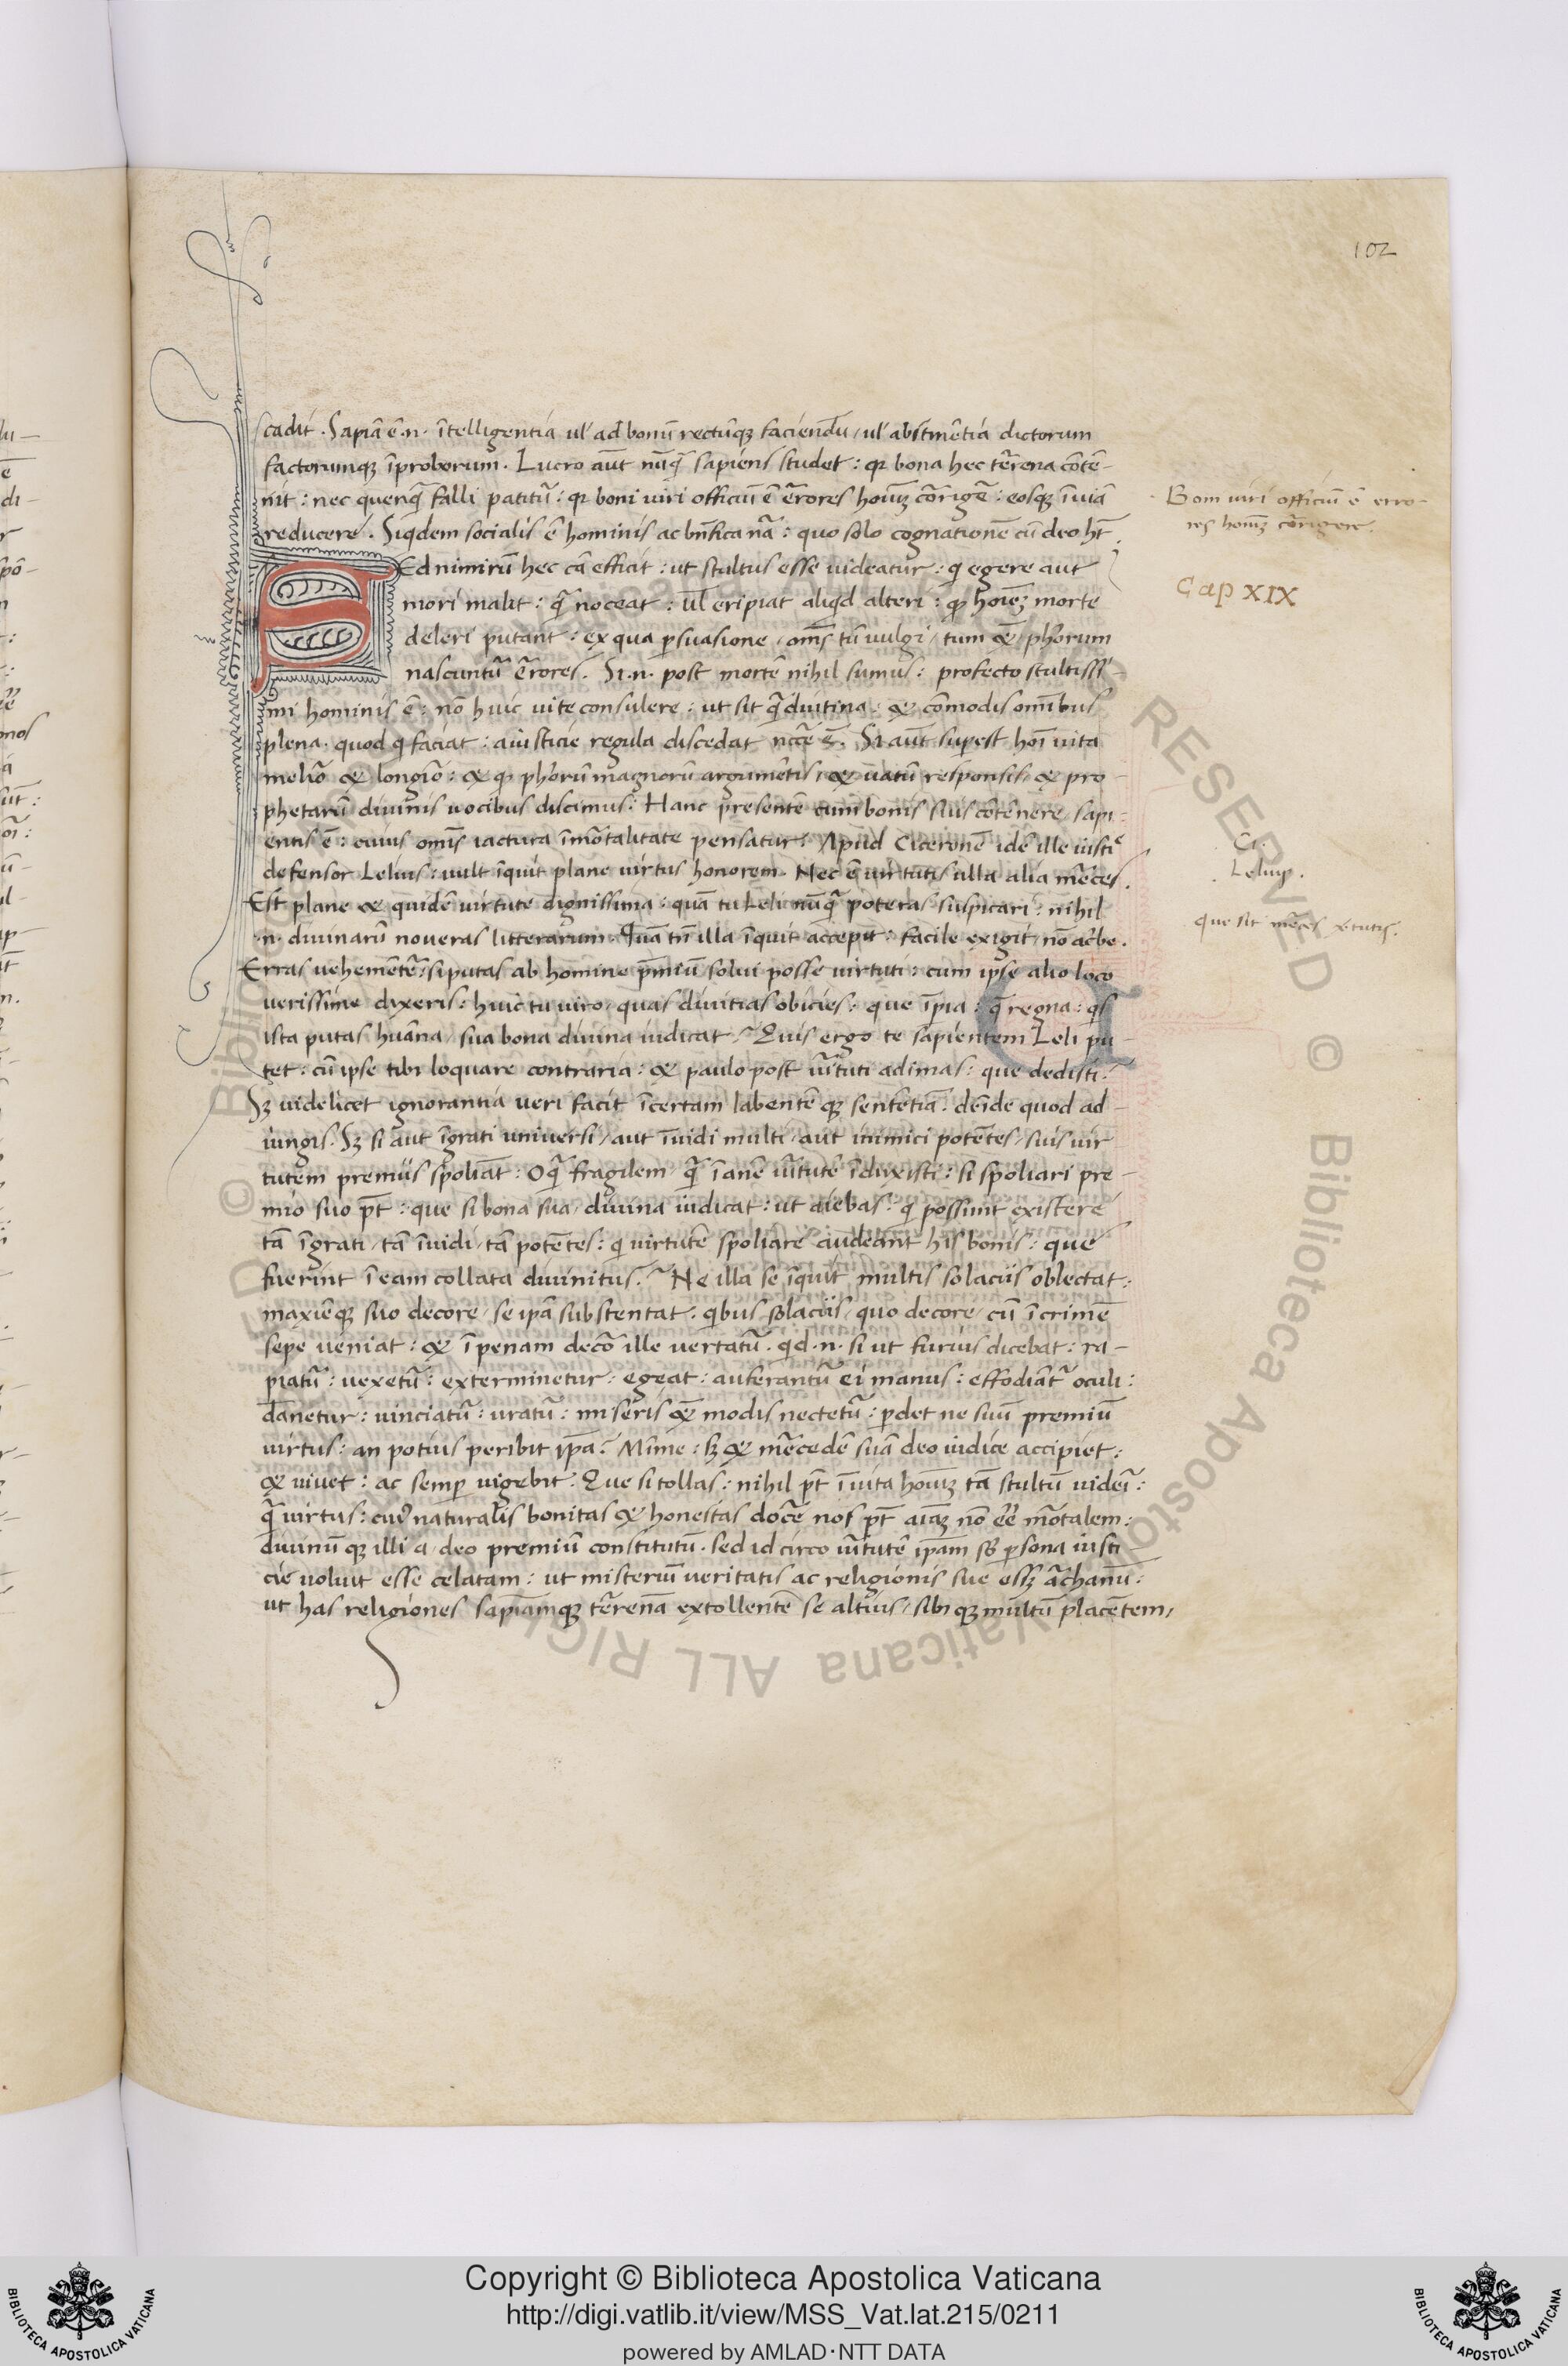 102
scadit. Sapiā ē .n. ītelligentia ul' ad bonū rectūqȝ faciendū / ul' abstinētia dictorum
factorumqȝ īproborum. Lucro aūt nūq̄ sapiens studet: qr bona hec tērena cōtē-
nit: nec quenq̄ falli patitū: qr boni uiri officiū ē ērores hoīuȝ cōrigē: eosqȝ ī uiā
reducere. Siqdem socialis ē hominis ac bn̄fica nā: quo solo cognationē cū deo ht̄.
SEd nimirū hec cā efficit: ut stultus esse uideatur: q egere aut
mori malit: q̄ noceat: ul̄ eripiat aliqd alteri: qr hoīeȝ morte
deleri putant: ex qua psuasione / om̄s tū uulgi / tum & ph̄orum
nascuntū ērores. Si .n. post mortē nihil sumus: profecto stultissi-
mi hominis ē: nō huic uite consulere: ut sit q̄ diutina: & cōmodis omībus
plena. quod q faciat: a iusticie regula discedat nccē ē. Si aūt supest hoī uita
meliō & longiō: & qr ph̄orū magnorū argumētis / & uatū responsis / & pro-
phetarū diuinis uocibus discimus: Hanc presentē cum bonis suis cōtēnere / sapi-
entis ē: cuius om̄is iactura īmōtalitate pensatur. Apud Ciceronē idē ille iustie
defensor Lelius: uult īquit plane uirtus honorem. Nec ē uirtutis ulla alia mēces.
Est plane & quidē uirtute dignissima: quā tu Leli nūq̄ poteras suspicari: nihil
.n. diuinarū noueras litterarum. Quā tn̄ illa īquit accepit: facile exigit / nō ac̄be.
Erras uehemētē: si putas ab homine p̄miū solui posse uirtuti: cum ipse alio loco
uerissime dixeris: huic tu uiro / quas diuitias obicies: que īpia: q̄ regna: qs
ista putas huāna / sua bona diuina iudicat. Quis ergo te sapientem Leli pu-
tet: cū ipse tibi loquare contraria: & paulo post uītuti adimas: que dedisti.
Sȝ uidelicet ignorantia ueri facit īcertam labentē qȝ sentētiā. deīde quod ad-
iungis. Sȝ si aut īgrati uniuersi / aut īuidi multi / aut inimici potētes / suis uir
tutem premiis spoliāt: O q̄ fragilem q̄ īanē uītutē īduxisti: si spoliari pre-
mio suo pt̄: que si bona sua / diuina iudicat: ut diebas: q possunt existere
tā īgrati / tā īuidi / tā potētes: q uirtutē spoliare audeant his bonis: que
fuerint ī eam collata diuinitus. Ne illa se īquit multis solaciis oblectat:
maxiēqȝ suo decore / se ipā substentat. qbus solaciis / quo decore / cū ī crimē
sepe ueniat: & ī penam decō ille uertatū. qd .n. si ut furius dicebat: ra-
piatū: uexetū: exterminetur: egeat: auferantū ei manus: effodiātr oculi:
dānetur: uinciatū: uratū: miseris & modis nectetū: pdet ne suū premiū
uirtus: an potius peribit ipa? Mīme: sȝ & mēcedē suā deo iudice accipiet:
& uiuet: ac semp uigebit. Que si tollas: nihil pt̄ ī uita hoīuȝ tā stultū uideī:
q̄ uirtus: cuī naturalis bonitas & honestas docē nos pt̄ aīaȝ nō eē mōtalem:
diuinū qȝ illi a deo premiū constitutū. sed id circo uītutē ipam sȝ psona iusti
cie uoluit esse celatam: ut misteriū ueritatis ac religionis sue essȝ āchanū:
ut has religiones sapīamqȝ tērena extollentē se altius / sibi qȝ multū placētem,
Boni uiri officiū ē erro-
res hoīuȝ cōrigere.
Cap XIX
Ci.
Lelius.
Que sit mēces ꝟtutis.
Copyright © Biblioteca Apostolica Vaticana
http://digi.vatlib.it/view/MSS_Vat.lat.215/0211
powered by AMLAD·NTT DATA
BIBLIOTECA APOSTOLICA VATICANA
BIBLIOTECA APOSTOLICA VATICANA